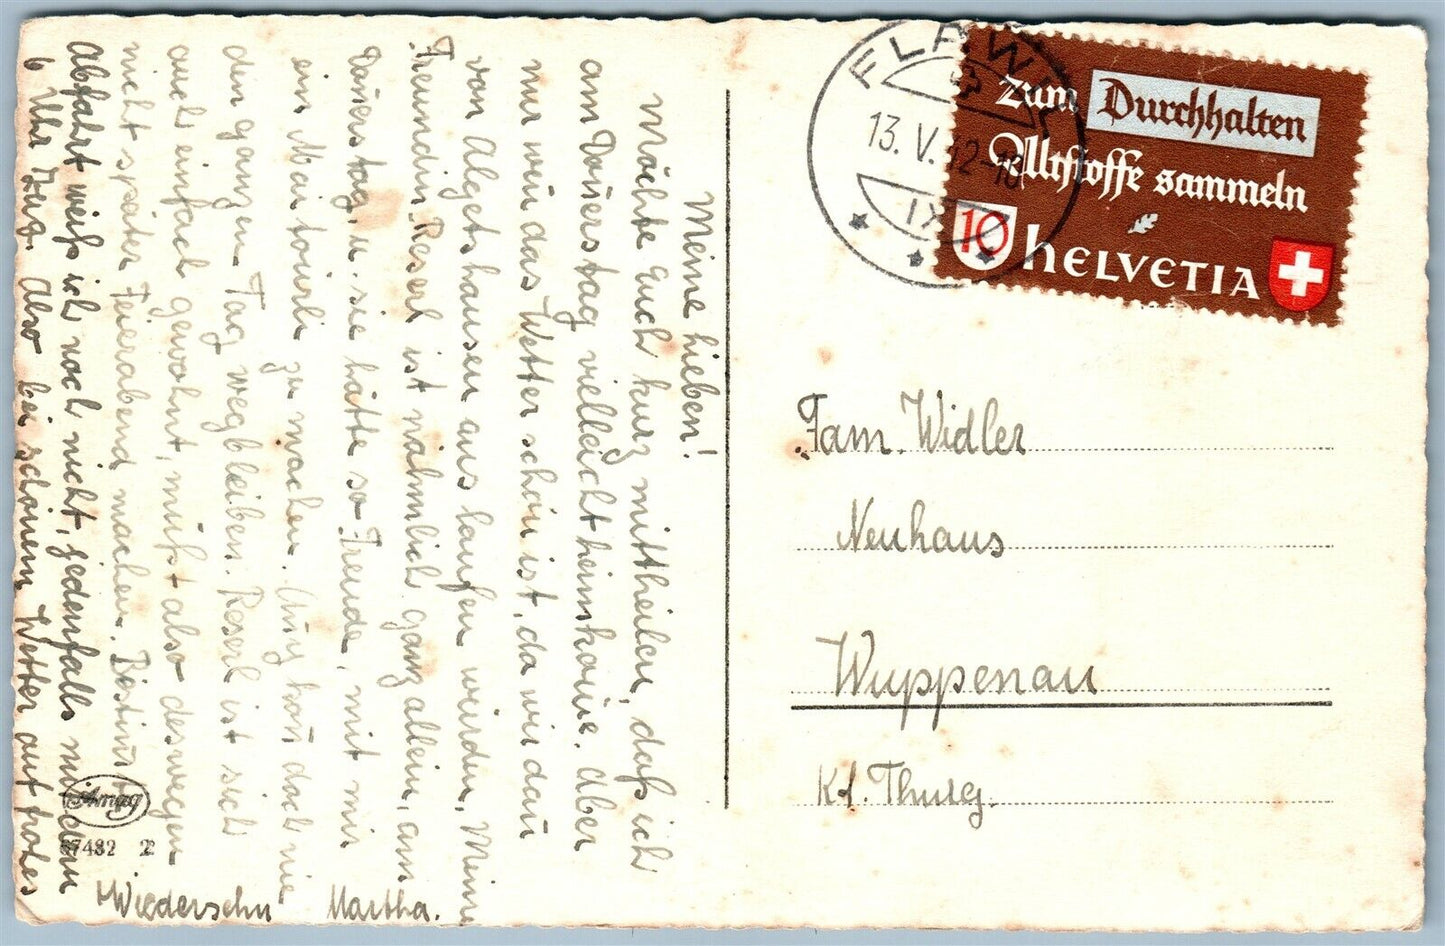 Meine Lieben!
Möchte Euch kurz mittheilen, daß ich
am Donerstag vielleicht heimkome. Aber
nur wen das Wetter schön ist, da wir dan
von Algetshausen aus laufen würden, Meine
Freundin Reserl ist nähmlich ganz allein, am
Donerstag, u. sie hätte so Freude, mit mir
ein Maitourli zu machen. kan doch nie
den ganzen Tag wegbleiben. Reserl ist sich
auch einfach gewohnt, muß also deswegen
nicht später Feierabend machen. Bestimt
Abfahrt weiß ich noch nicht, jedenfalls mit dem
6 Uhr Zug. Also bei schönem Wetter auf frohes
Wiedersehn Martha.
Amag
67482 2
FLAWIL
13. V. 42-18
IX
zum Durchhalten
Altstoffe sammeln
10 HELVETIA
Fam. Widler
Neuhaus
Wuppenau
Kt. Thurg.